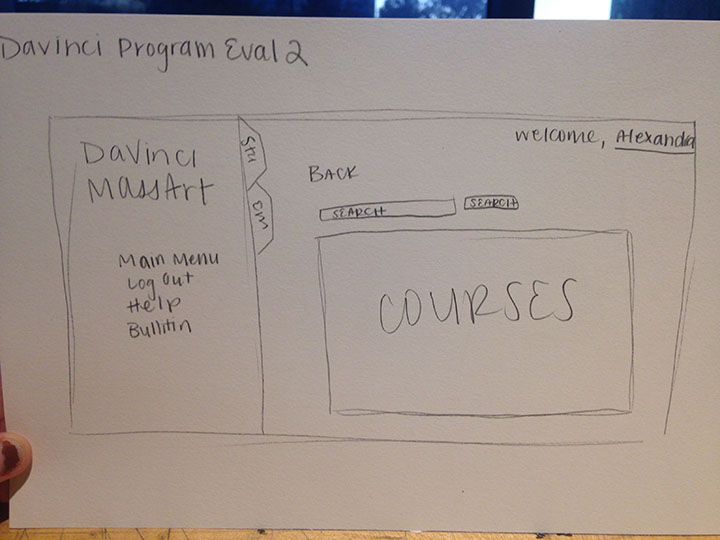 Davinci Program Eval 2
Davinci
MassArt
Main Menu
Log Out
Help
Bullitin
Stu
welcome, Alexandra
BACK
SEARCH
SEARCH
COURSES